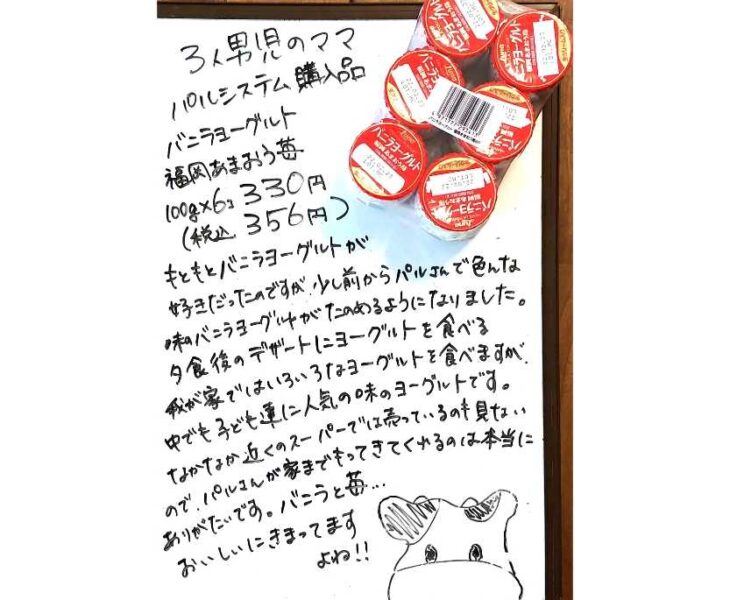 3人男児のママ
パルシステム 購入品
バニラヨーグルト
福岡あまおう苺
100g×6コ 330円
(税込 356円)
もともとバニラヨーグルトが
好きだったのですが、少し前からパルさんで色んな
味のバニラヨーグルトがたのめるようになりました。
夕食後のデザートにヨーグルトを食べる
我が家ではいろいろなヨーグルトを食べますが、
中でも子ども達に人気の味のヨーグルトです。
なかなか近くのスーパーでは売っているのも見ない
ので、パルさんが家までもってきてくれるのは本当に
ありがたいです。バニラと苺…
おいしいにきまってます
よね!!
バニラヨーグルト
福岡あまおう苺
バニラヨーグルト
バニラヨーグルト
バニラヨーグルト